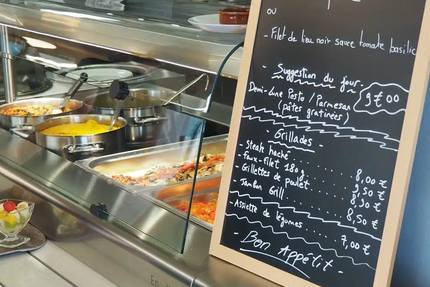 ou
- Filet de lieu noir sauce tomate basilic
- Suggestion du jour -
Demi-Lune Pesto / Parmesan
(pâtes gratinées)
9€00
- Grillades -
- Steak haché ........ 8,00€
- Faux-filet 180g ........ 9,50€
- Grillettes de poulet ........ 8,90€
- Jambon Grill ........ 8,50€
- Assiette de légumes ........ 7,00€
- Bon Appétit -